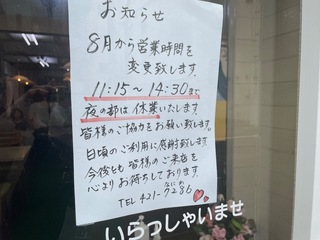 お知らせ
8月から営業時間を
変更致します。
11:15～14:30まで
夜の部は休業いたします
皆様のご協力をお願い致します。
日頃のご利用に感謝致します。
今後とも皆様のご来店を
心よりお待ちしております。
TEL 421-7286
いらっしゃいませ